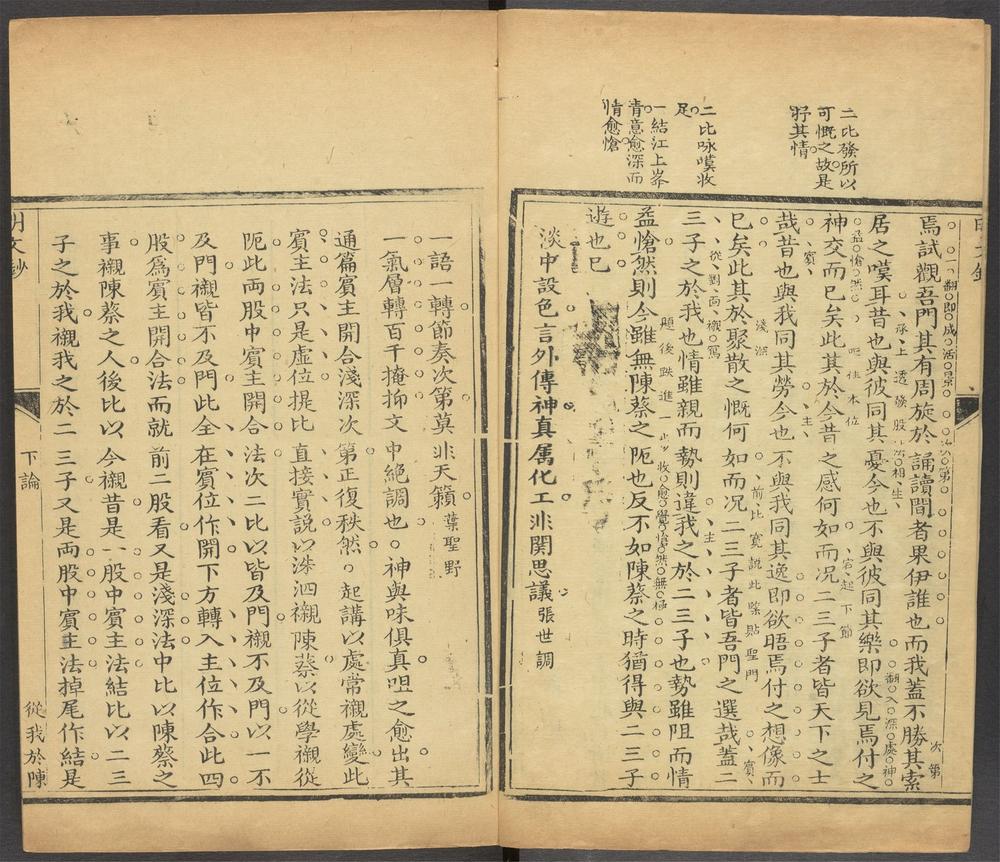 二比發所以
可慨之故是
將其情
二比咏嘆收
足
一結江上峯
青意愈深而
情愈愴
焉試觀吾門其有周旋於誦讀間者果伊誰也而我蓋不勝其索
次第
翻即成活景
居之嘆耳昔也與彼同其憂今也不與彼同其樂即欲見焉付之
承上透發股
相生
翻入深處神
神交而已矣此其於今昔之感何如而况二三子者皆天下之士
孟愴然
哉昔也與我同其勞今也不與我同其逸即欲晤焉付之想像而
賓
主
宕起下節
已矣此其於聚散之慨何如而况二三子者皆吾門之選哉蓋二
淺深
前比寬說此緊貼聖門
三子之於我也情雖親而勢則違我之於二三子也勢雖阻而情
從對面襯寫
主
賓
孟愴然則今雖無陳蔡之阨也反不如陳蔡之時猶得與二三子
題後跌進一步收愈覺愴然無極
遊也已
淡中設色言外傳神真屬化工非關思議張世調
一語一轉節奏次第莫非天籟葉聖野
一氣層轉百千掩抑文中絕調也神與味俱真咀之愈出其
通篇賓主開合淺深次第正復秩然起講以處常襯處變此
賓主法只是虛位提比直接實説以洙泗襯陳蔡以從學襯從
阨此兩股中賓主開合法次二比以皆及門襯不及門以一不
及門襯皆不及門此全在賓位作開下方轉入主位作合此四
股爲賓主開合法而就前二股看又是淺深法中比以陳蔡之
事襯陳蔡之人後比以今襯昔是一股中賓主法結比以二三
子之於我襯我之於二三子又是兩股中賓主法掉尾作結是
明文鈔
下論
從我於陳